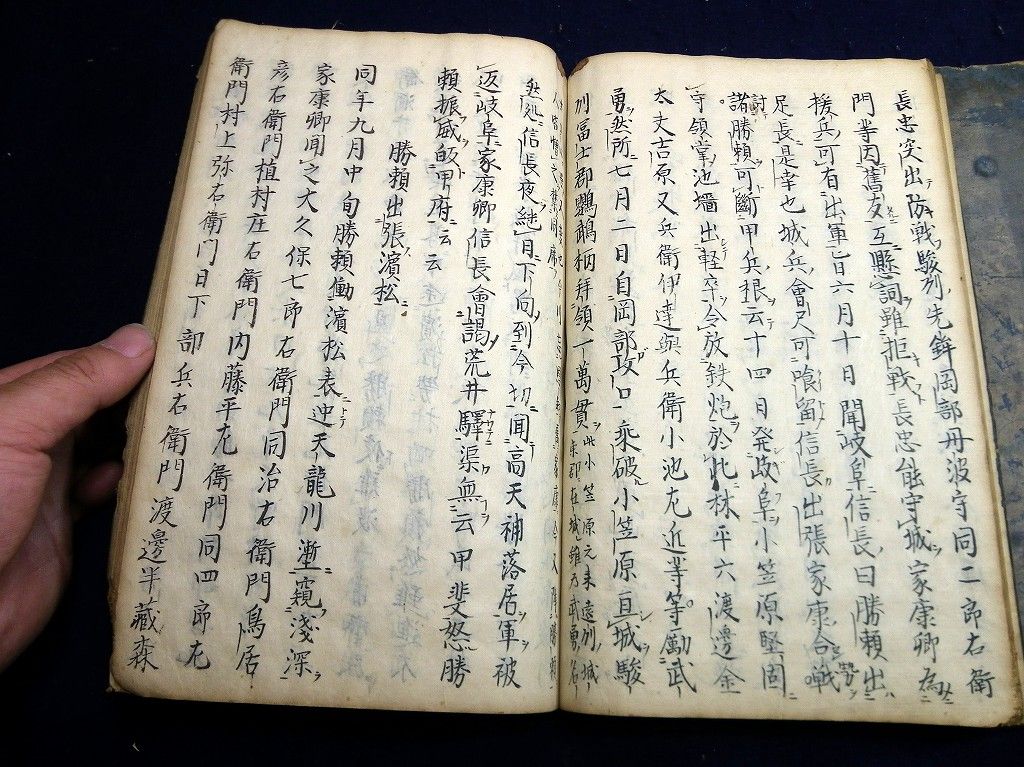 長忠突出防戦駿列先鋒岡部丹波守同二郎右衛
門等因舊友互懸詞雖拒戦長忠能守城家康卿為
援兵可有出軍旨六月十日聞岐阜信長曰勝頼出
足長是幸也城兵會尺可喰留信長出張家康合戦
諸勝頼可斷甲兵根云十四日発岐阜小笠原堅固
守領掌池墻出軽卒令放鉄炮於此林平六渡邊金
太丈吉原又兵衛伊達與兵衛小池左近等等勵武
勇然所七月二日自岡部攻口乗破小笠原亘城駿
州冨士郡鸚鵡栖拝領一萬貫此小笠原元来遠列城
然処信長夜継日下向到今切聞高天神落居軍被
返岐阜家康卿信長會謁荒井驛渠無云甲斐怒勝
頼振威皈甲府云云
勝頼出張濱松
同年九月中旬勝頼働濱松表迚天龍川漸窺淺深
家康卿聞之大久保七郎右衛門同治右衛門鳥居
彦右衛門植村庄右衛門内藤平左衛門同四郎左
衛門村上弥右衛門日下部兵右衛門渡邊半藏森